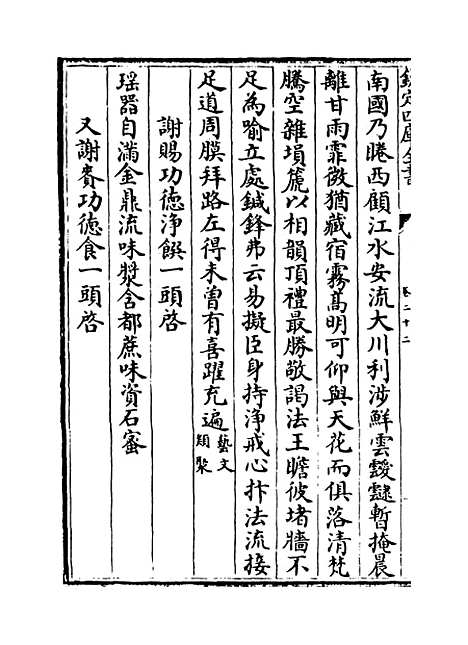 欽定四庫全書
卷二十二
南國乃睠西顧江水安流大川利涉鮮雲靉靆暫掩晨
離甘雨霏微猶藏宿霧髙明可仰與天花而俱落清梵
騰空雜塤箎以相韻頂禮最勝敬謁法王瞻彼堵牆不
足為喻立處鍼鋒弗云易擬臣身持浄戒心抃法流接
足道周膜拜路左得未曽有喜躍充遍藝文類聚
謝賜功徳浄饌一頭啓
瑶器自滿金鼎流味漿含都蔗味資石蜜
又謝賚功徳食一頭啓